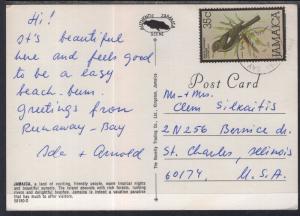 Hi!
It's beautiful
here and feels good
to be a lazy
beach-bum.
Greetings from
Runaway-Bay
Ada + Arnold
JAMAICA, a land of exciting, friendly people, warm tropical nights
and beautiful sunsets. The island abounds with rich forests, rushing
rivers and delightful beaches. Jamaica is indeed a vacation paradise
that has much to offer visitors.
AUTHENTIC JAMAICA
SCENE
35c
JAMAICA
Post Card
Mr + Mrs.
Clem Silkaitis
2N256 Bernice dr.
St. Charles, Illinois
60174, U.S.A.